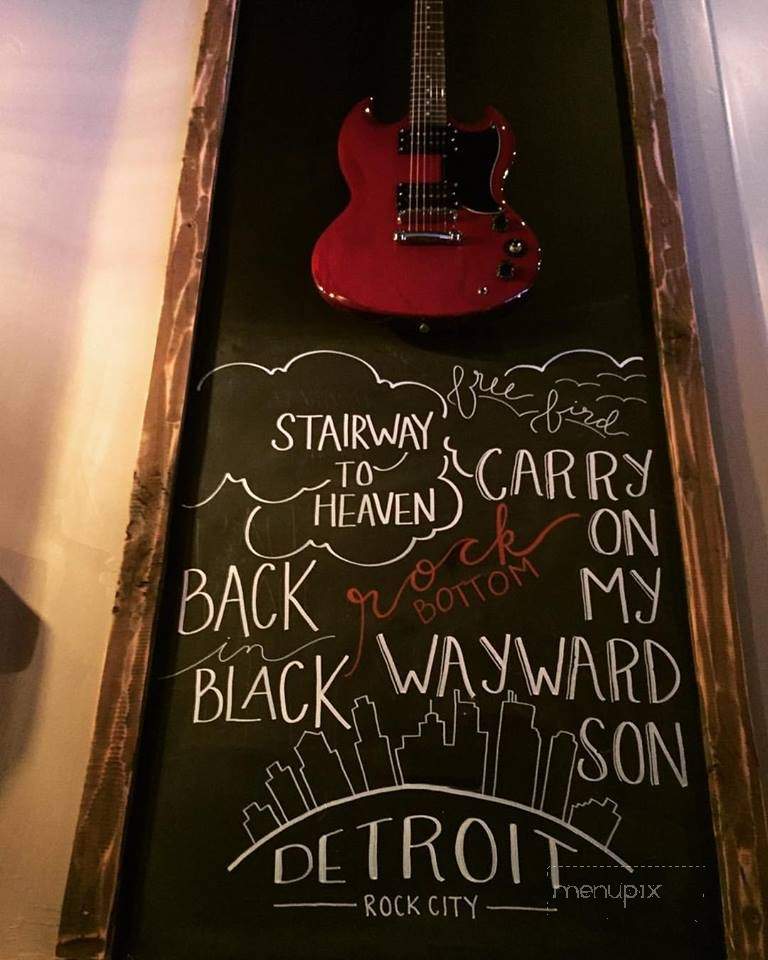 free bird
STAIRWAY
TO
HEAVEN
CARRY
ON
MY
WAYWARD
SON
rock
BOTTOM
BACK
in
BLACK
DETROIT
ROCK CITY
menupix